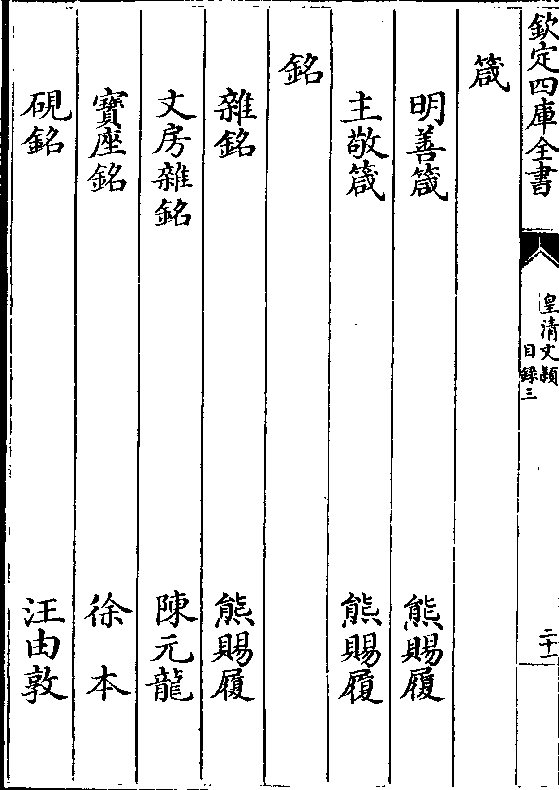 欽定四庫全書
皇清文穎
目録三
二十一
箴
明善箴 熊賜履
主敬箴 熊賜履
銘
雜銘 熊賜履
文房雜銘 陳元龍
寶座銘 徐本
硯銘 汪由敦